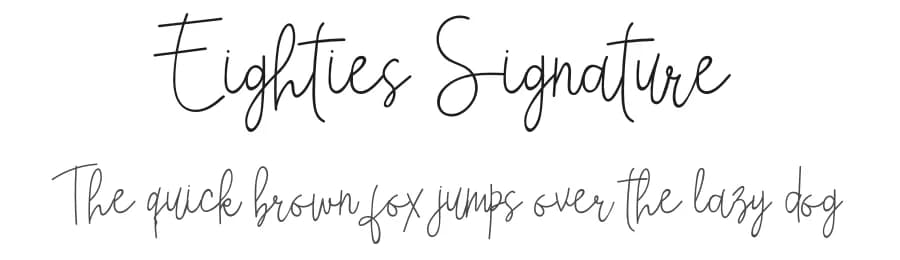 Eighties Signature
The quick brown fox jumps over the lazy dog